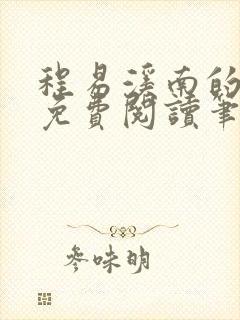 程易滢南的
免費閱讀筆
參味明